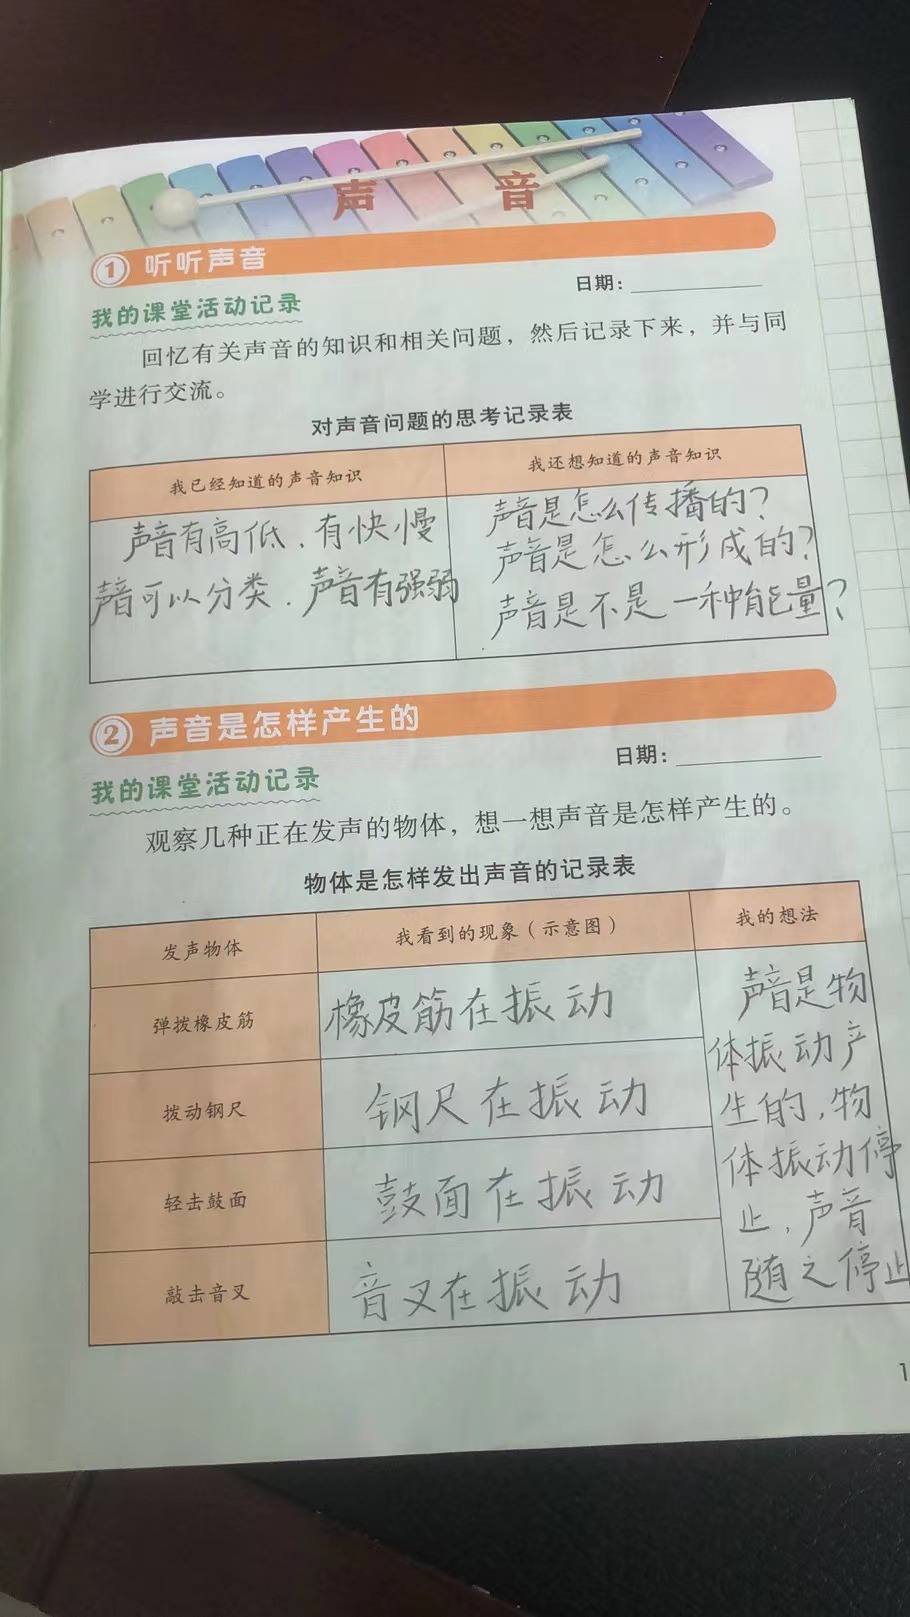 声 音
① 听听声音
日期：
我的课堂活动记录
回忆有关声音的知识和相关问题，然后记录下来，并与同
学进行交流。
对声音问题的思考记录表
我已经知道的声音知识
我还想知道的声音知识
声音有高低、有快慢
声音可以分类．声音有强弱
声音是怎么传播的？
声音是怎么形成的？
声音是不是一种能量？
② 声音是怎样产生的
日期：
我的课堂活动记录
观察几种正在发声的物体，想一想声音是怎样产生的。
物体是怎样发出声音的记录表
发声物体
我看到的现象（示意图）
我的想法
弹拨橡皮筋
橡皮筋在振动
拨动钢尺
钢尺在振动
轻击鼓面
鼓面在振动
敲击音叉
音叉在振动
声音是物
体振动产
生的，物
体振动停
止，声音
随之停止
1